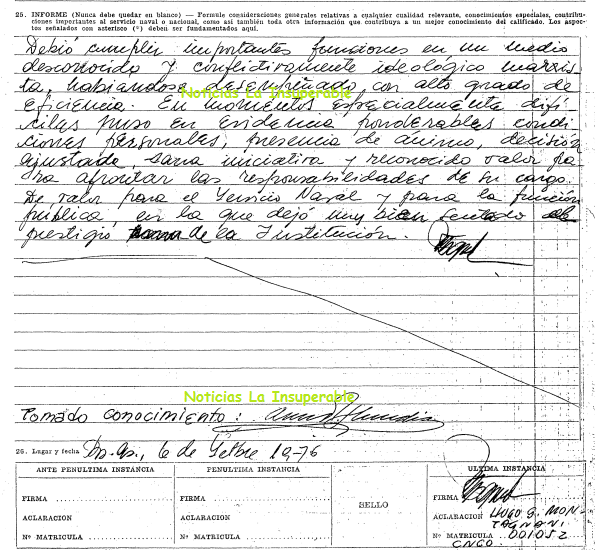 25. INFORME (Nunca debe quedar en blanco) — Formule consideraciones generales relativas a cualquier cualidad relevante, conocimientos especiales, contribu-
ciones importantes al servicio naval o nacional, como así también toda otra información que contribuya a un mejor conocimiento del calificado. Los aspec-
tos señalados con asterisco (*) deben ser fundamentados aquí.
Debió cumplir importantes funciones en un medio
desconocido y conflictivamente ideológico marxis-
ta, habiéndose desempeñado con alto grado de
Noticias La Insuperable
eficiencia. En momentos especialmente difí
ciles puso en evidencia ponderables condi
ciones personales, presencia de ánimo, decisión
ajustada, sana iniciativa y reconocido valor pa
ra afrontar las responsabilidades de su cargo.
De valor para el Servicio Naval y para la función
pública, en la que dejó muy bien sentado el
prestigio de la Institución
Noticias La Insuperable
Tomado conocimiento:
26. Lugar y fecha Bs. As., 6 de Setbre 1976
ANTE PENULTIMA INSTANCIA
PENULTIMA INSTANCIA
ULTIMA INSTANCIA
FIRMA
FIRMA
SELLO
FIRMA
ACLARACION
ACLARACION
ACLARACION HUGO S. MON-
TAGNANI
Nº MATRICULA
Nº MATRICULA
Nº MATRICULA 001052
CNCO